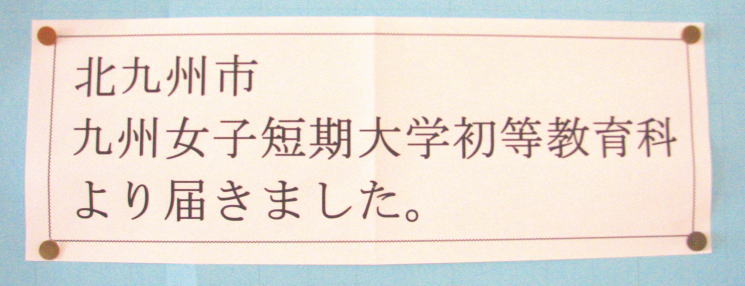 北九州市
九州女子短期大学初等教育科
より届きました。